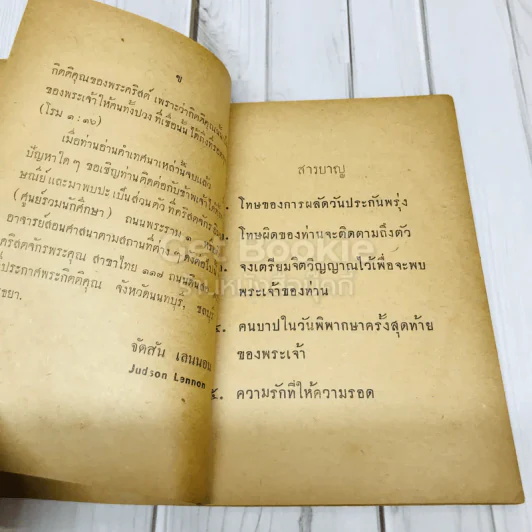 ข
กิตติคุณของพระคริสต์ เพราะว่ากิตติคุณนั้น
ของพระเจ้าให้คนทั้งปวง ที่เชื่อนั้น ได้ถึงที่รอด
(โรม ๑:๑๖)
เมื่อท่านอ่านคำเทศนาเหล่านี้จบแล้ว
ปัญหาใด ๆ ขอเชิญท่านติดต่อกับข้าพเจ้าได้
ษณีย์ และมาพบปะ เป็นส่วนตัว ที่คริสตจักร
(ศูนย์รวมนักศึกษา) ถนนพระราม
อาจารย์สอนศาสนาตามสถานที่
คริสตจักรพระคุณ สาขาไทย ๑๑๗ ถนน
ประกาศพระกิตติคุณ จังหวัดนนทบุรี,
จัดสัน เลนนอน
Judson Lennon
สารบาญ
โทษของการผลัดวันประกันพรุ่ง
โทษผิดของท่านจะติดตามถึงตัว
จงเตรียมจิตวิญญาณไว้เพื่อจะพบ
พระเจ้าของท่าน
๔. คนบาปในวันพิพากษาครั้งสุดท้าย
ของพระเจ้า
๕. ความรักที่ให้ความรอด
Get Bookie